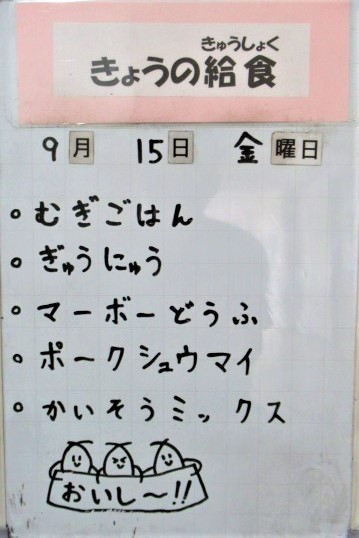 きゅうしょく
きょうの給食
9月 15日 金曜日
。むぎごはん
。ぎゅうにゅう
。マーボーどうふ
。ポークシュウマイ
。かいそうミックス
おいし〜!!